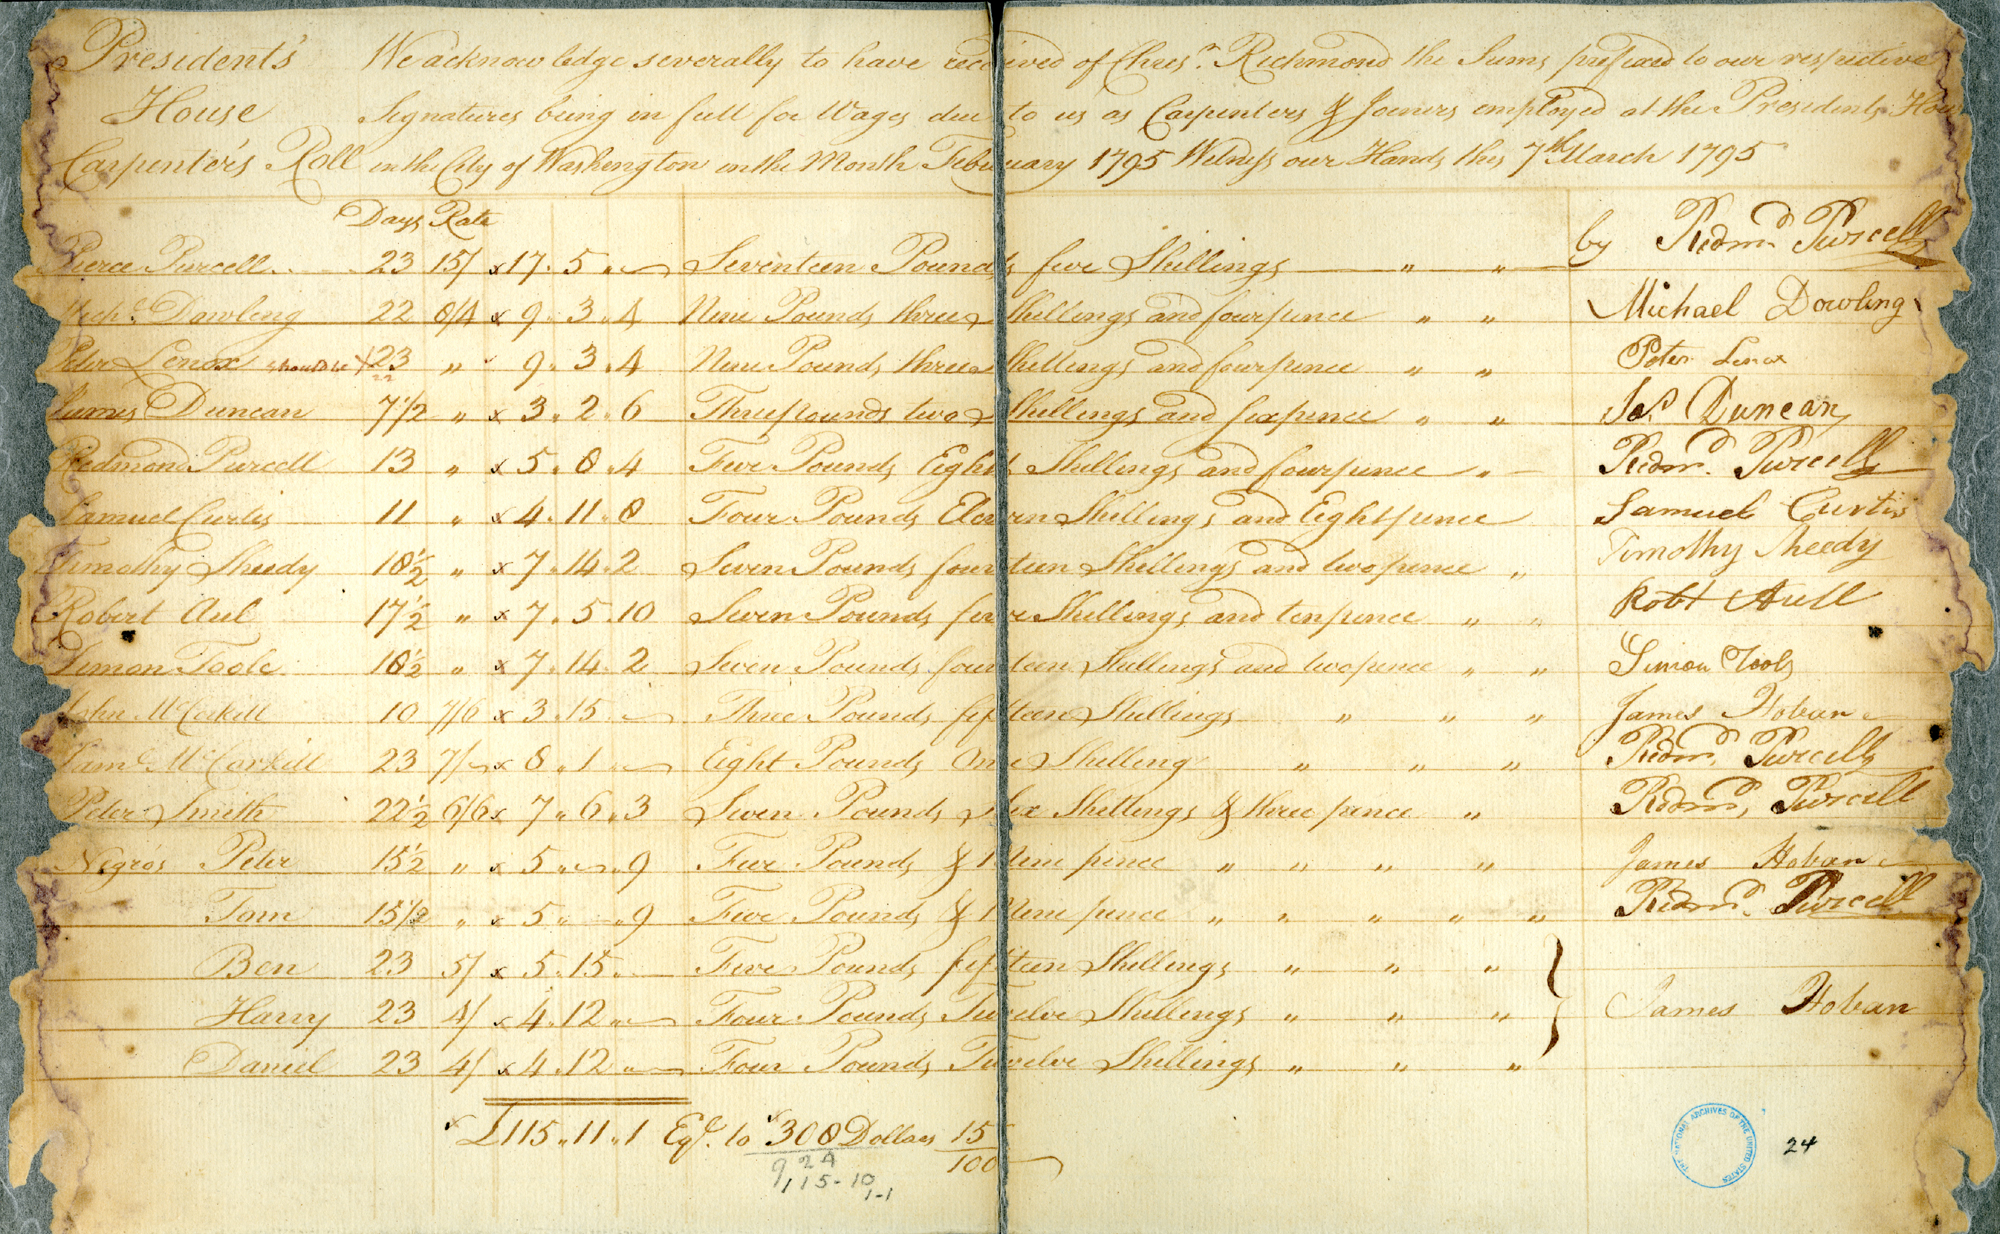 President's We acknowledge severally to have received of Chrisr. Richmond the Sums prefixed to our respective
House Signatures being in full for Wages due to us as Carpenters & Joiners employed at the Presidents House
Carpenter's Roll in the City of Washington in the Month February 1795 Witness our Hands this 7th March 1795
Days Rate
Pierce Purcell 23 15/ x 17. 5 " Seventeen Pounds five Shillings " " by Redmd. Purcell
Michl. Dowling 22 8/4 x 9. 3. 4 Nine Pounds three Shillings and fourpence " " Michael Dowling
Peter Lenox should be x 23 " 9. 3. 4 Nine Pounds three Shillings and fourpence " " Peter Lenox
22
James Duncan 7 1/2 " x 3. 2. 6 Three pounds two Shillings and sixpence " " Jas. Duncan
Redmond Purcell 13 " x 5. 8. 4 Five Pounds Eight Shillings and fourpence " Redmd. Purcell
Samuel Curtis 11 " x 4. 11. 8 Four Pounds Eleven Shillings and Eightpence Samuel Curtis
Timothy Sheedy 18 1/2 " x 7. 14. 2 Seven Pounds fourteen Shillings and twopence " Timothy Sheedy
Robert Aul 17 1/2 " x 7. 5. 10 Seven Pounds five Shillings and tenpence " " Robt Aull
Simon Toole 18 1/2 " x 7. 14. 2 Seven Pounds fourteen Shillings and twopence " " Simon Toole
John McCorkill 10 7/6 x 3. 15. Three Pounds fifteen Shillings " " " James Hoban
Saml. McCorkill 23 7/ x 8. 1 " Eight Pounds One Shilling " " " Redmd. Purcell
Peter Smith 22 1/2 6/6 x 7. 6. 3 Seven Pounds Six Shillings & three pence " Redmd. Purcell
Negros Peter 15 1/2 " x 5 " " 9 Five Pounds & Nine pence " " " " James Hoban
Tom 15 1/2 " x 5 " " 9 Five Pounds & Nine pence " " " " " Redmd. Purcell
Ben 23 5/ x 5. 15. Five Pounds fifteen Shillings " " "
Harry 23 4/ x 4. 12 " Four Pounds Twelve Shillings " " " James Hoban
Daniel 23 4/ x 4. 12 " Four Pounds Twelve Shillings " " "
£115. 11. 1 Eql. to 308 Dollars 15/100
9 24
115-10
1-1
THE NATIONAL ARCHIVES OF THE UNITED STATES
24